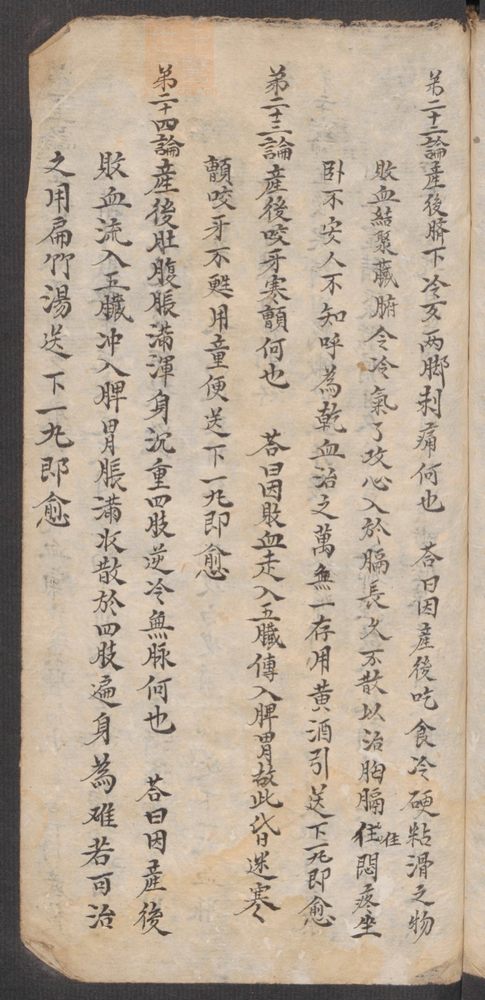 弟二十二論産後臍下冷及两脚刺痛何也　荅曰因産後吃食冷硬粘滑之物
敗血結聚藏腑令冷氣了攻心入於膈長久不散以治胸膈住住悶疼坐
卧不安人不知呼為乾血治之萬無一存用黄酒引送下一丸即愈
弟二十三論産後咬牙寒顫何也　荅曰因敗血走入五臓傳入脾胃故此昏迷寒
顫咬牙不甦用童便送下一丸即愈
弟二十四論産後肚腹脹滿渾身沉重四肢逆冷無脉何也　荅曰因産後
敗血流入五臓冲入脾胃脹滿收散於四肢遍身為碓若可治
之用扁竹湯送下一丸即愈